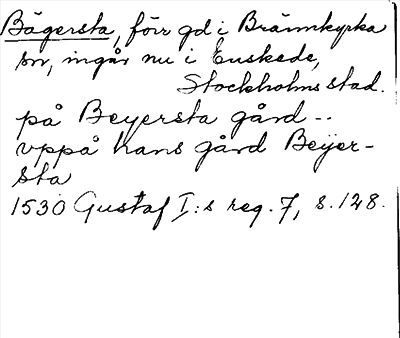 Bägersta, förr gd i Brännkyrka
sn, ingår nu i Enskede,
Stockholms stad.
på Beyersta gård..
vppå hans gård Beÿer-
sta
1530 Gustaf I:s reg. 7, s. 128.